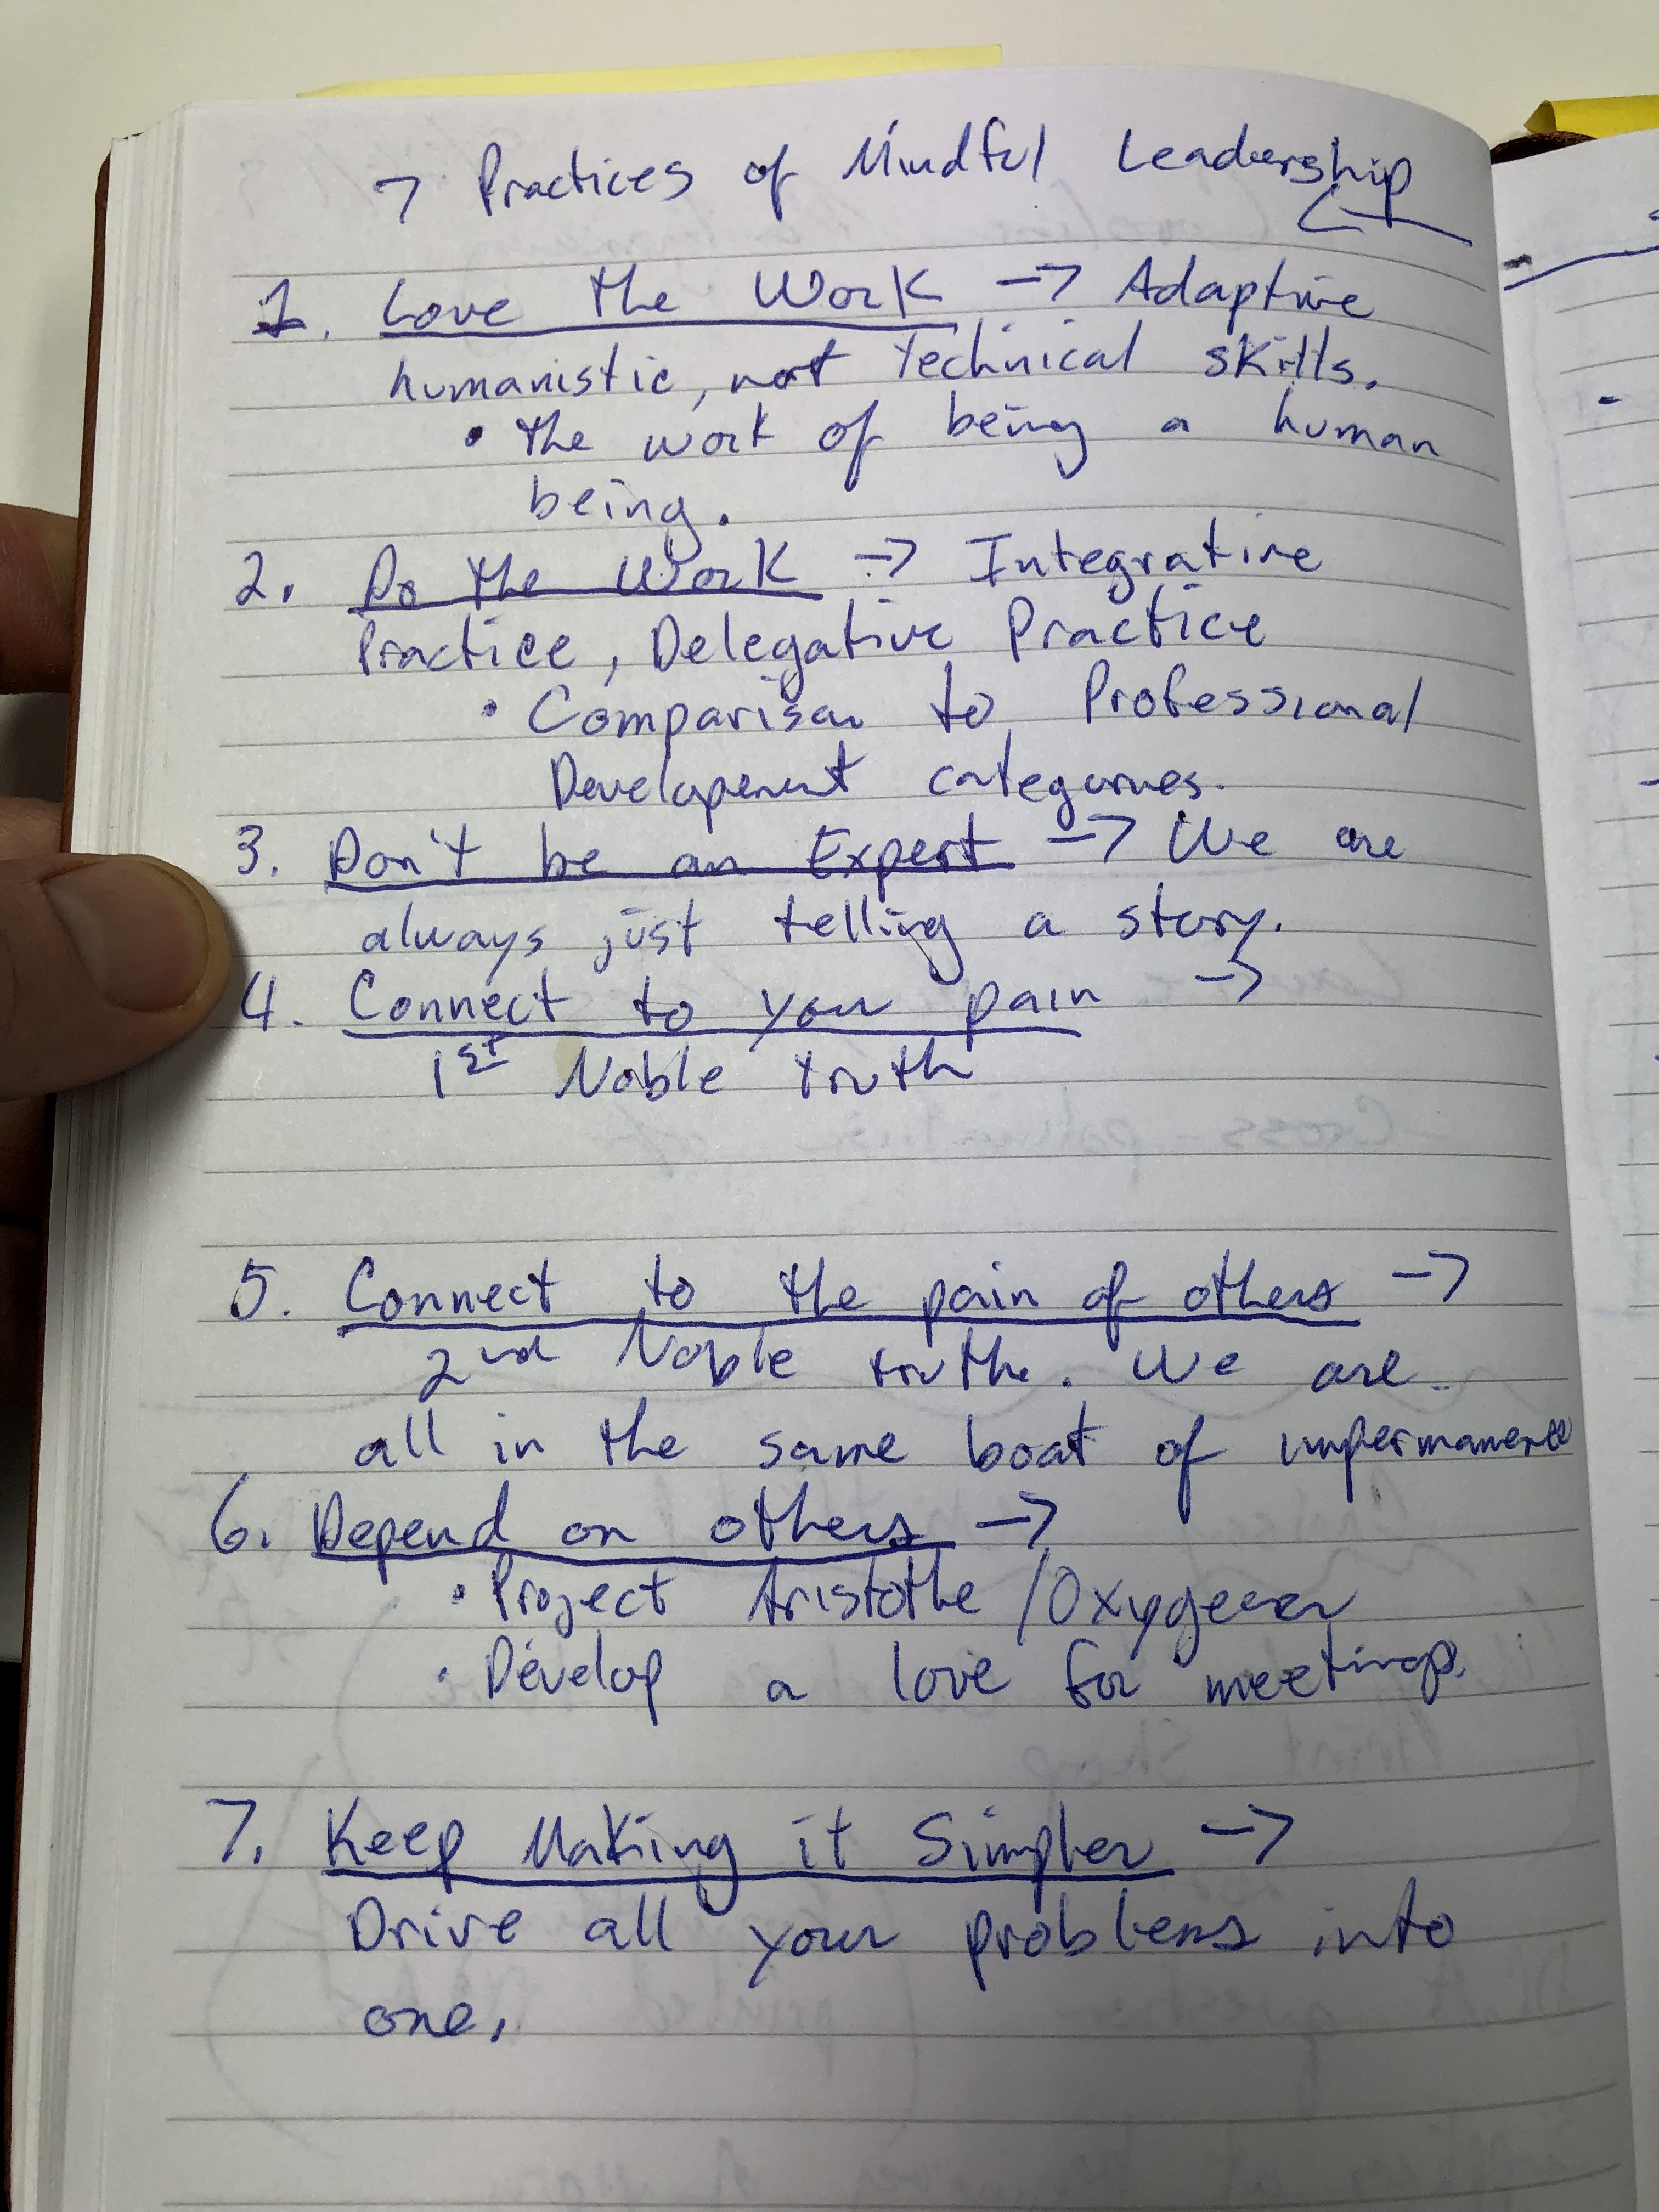 7 Practices of Mindful Leadership
1. Love the Work → Adaptive
humanistic, not technical skills.
• the work of being a human
being.
2. Do the Work → Integrative
Practice, Delegative Practice
• Comparison to Professional
Development categories.
3. Don't be an Expert → We are
always just telling a story.
4. Connect to your pain →
1st Noble truth
5. Connect to the pain of others →
2nd Noble truth. We are
all in the same boat of impermanence
6. Depend on others →
• Project Aristotle / Oxygen
• Develop a love for meetings.
7. Keep Making it Simpler →
Drive all your problems into
one.